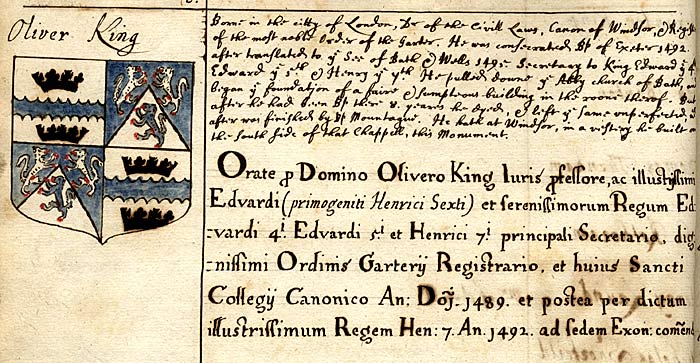 Oliver King
Borne in the citty of London, Dr of the Civill Laws, Canon of Windsor, & Regist
of the most noble Order of the Garter. He was consecrated Bp of Exeter 1492
after translated to ye See of Bath & Wells 1495. Secretary to King Edward ye 4
Edward ye 5th & Henry ye 7th He pulled downe ye Abby church of Bath, an
began ye foundation of a faire & sumptuous building in the roome therof. Bu
after he had been Bp ther 8 yeares he dyed, & left ye same unperfected,
after was finished by Bp Mountague. He hath at Windsor, in a vestry he built
the South side of that Chappell, this Monument.
Orate p Domino Olivero King Iuris pfessore, ac illustrissimi
Edvardi (primogeniti Henrici Sexti) et serenissimorum Regum Ed
=vardi 4i Edvardi 5i et Henrici 7i principali Secretario, dig
=nissimi Ordinis Garterij Registrario, et huius Sancti
Collegij Canonico An: Doj. 1489. et postea per dictum
illustrissimum Regem Hen: 7. An. 1492. ad sedem Exon: comend